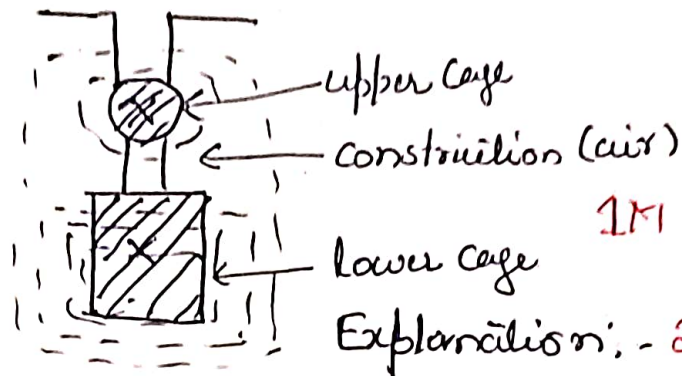 upper cage
constriction (air)
1M
lower cage
Explanation: -